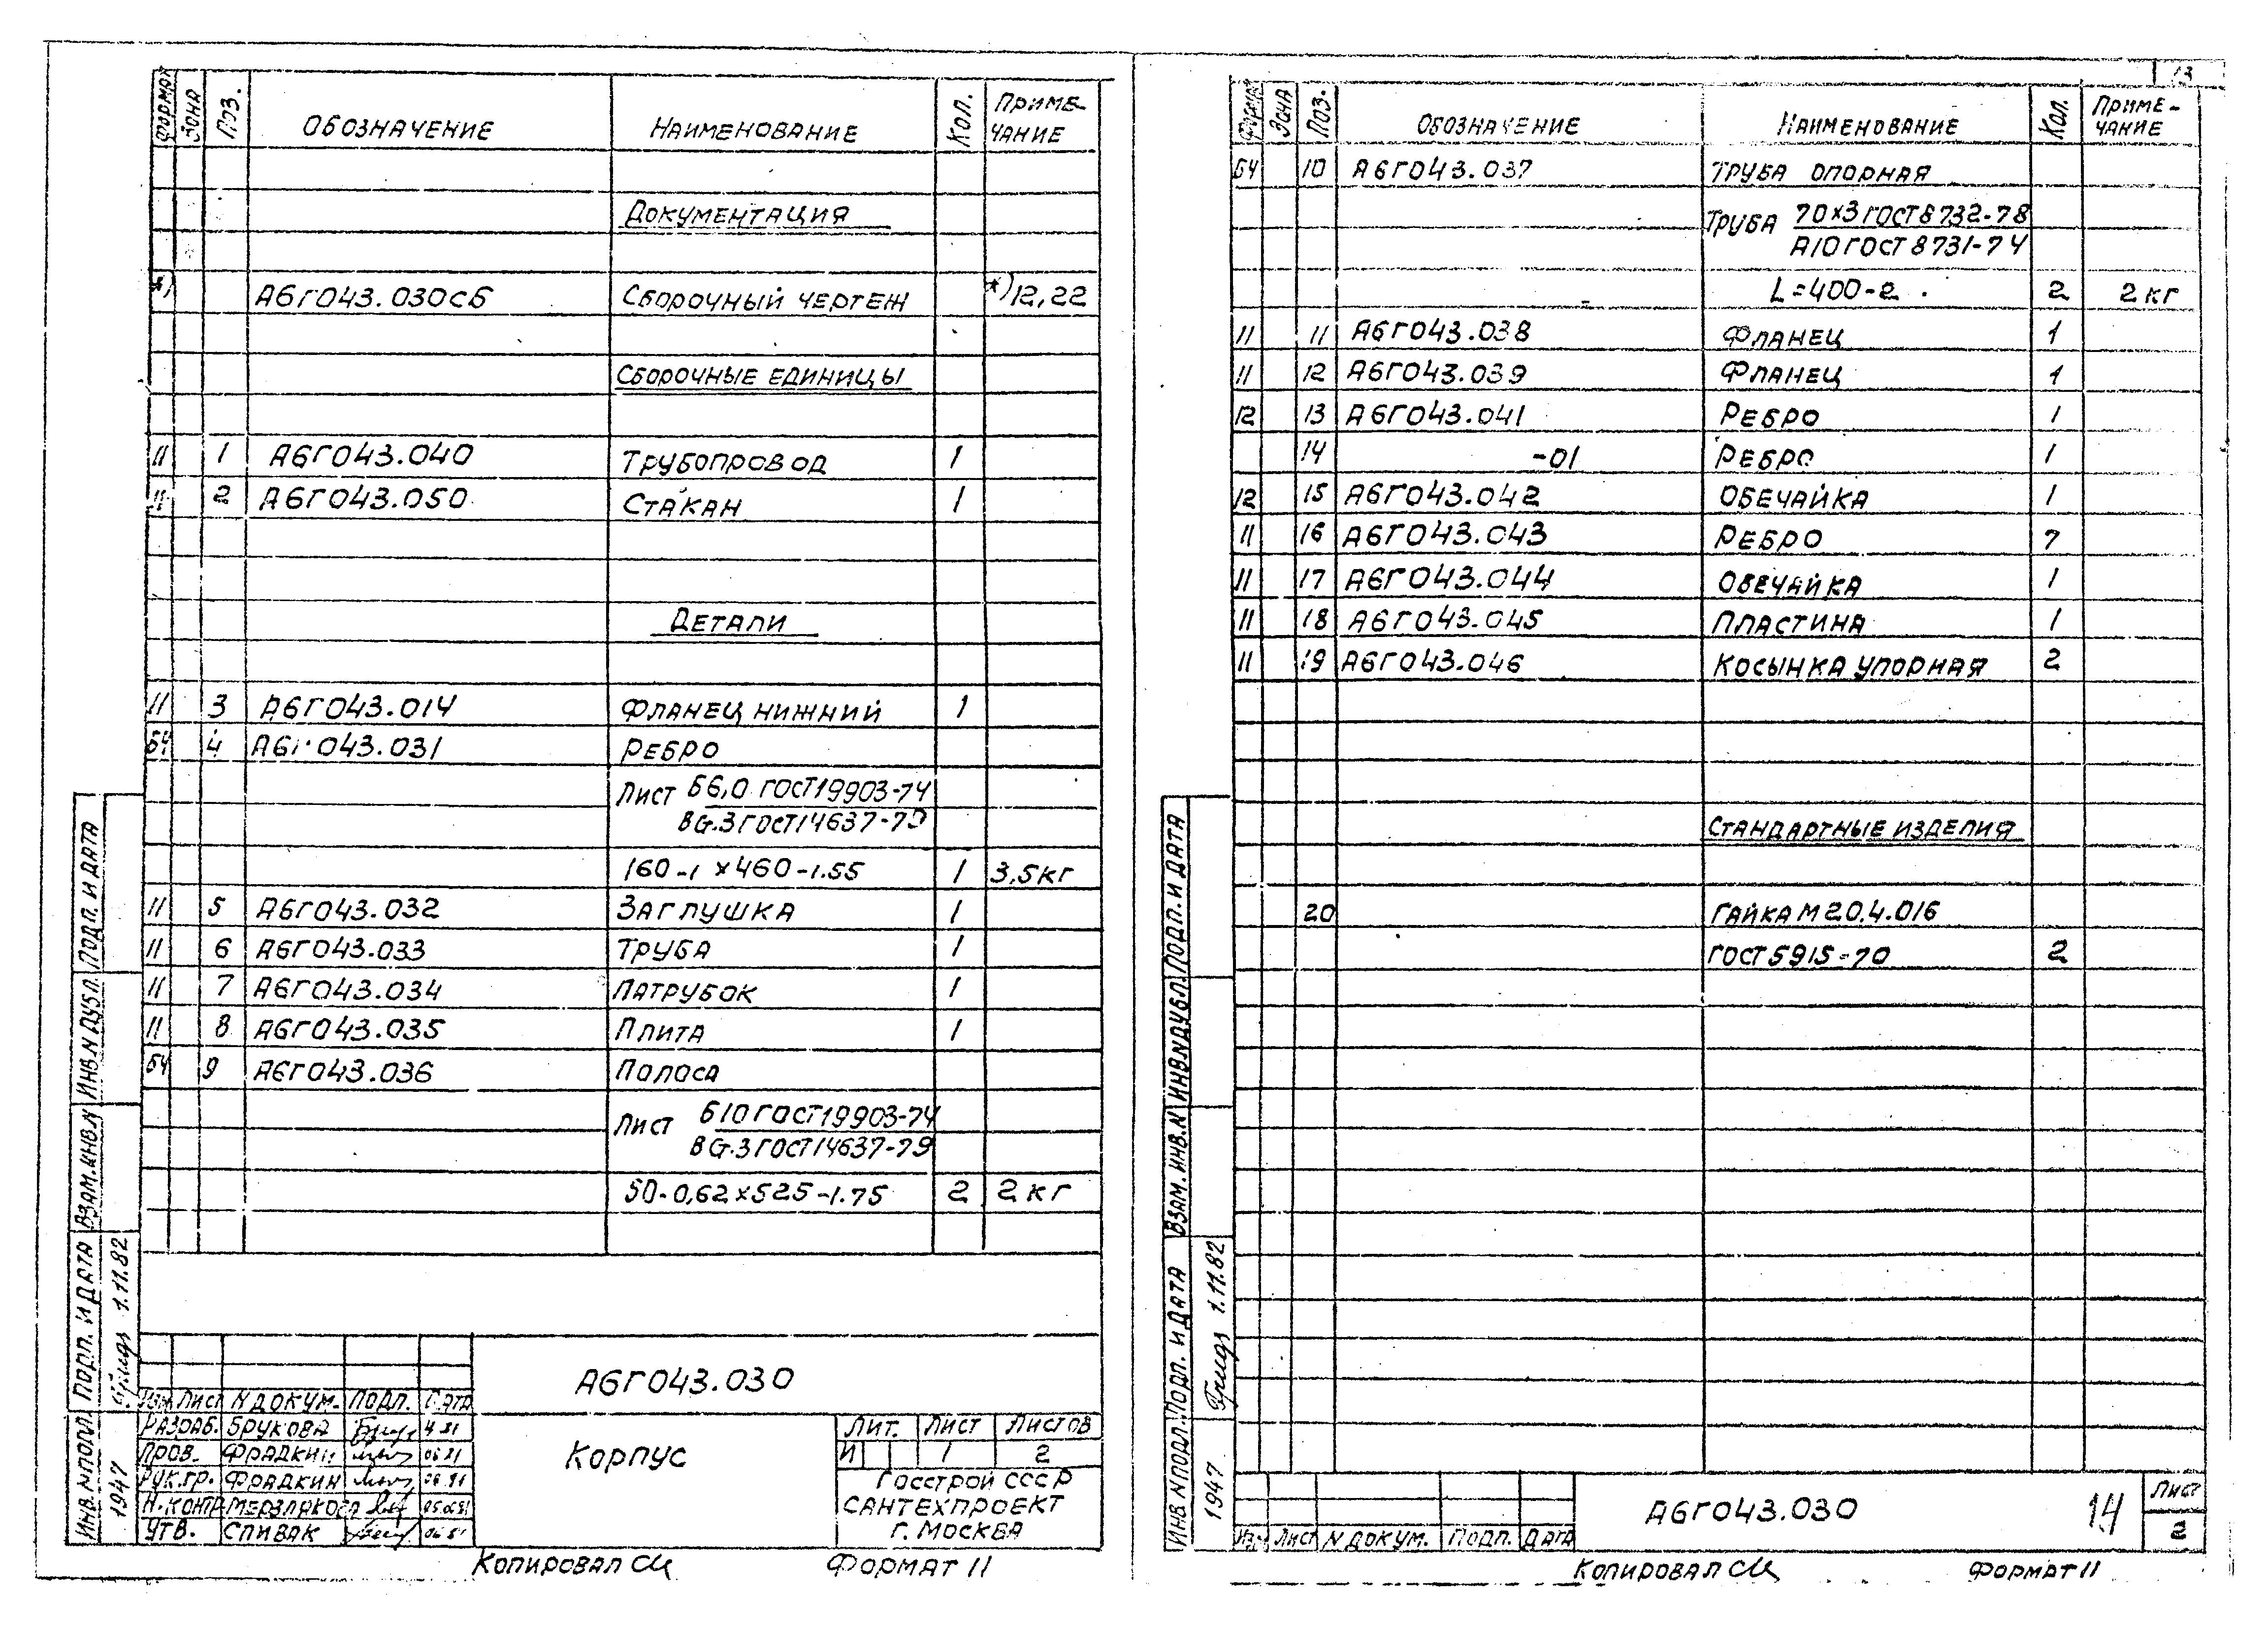 Формат Зона Поз. Обозначение Наименование Кол. Приме-чание
Документация
*) А6Г043.030СБ Сборочный чертеж *)12,22
Сборочные единицы
11 1 А6Г043.040 Трубопровод 1
11 2 А6Г043.050 Стакан 1
Детали
11 3 А6Г043.014 Фланец нижний 1
БЧ 4 А6Г043.031 Ребро
Лист Б6,0 ГОСТ19903-74
ВСт.3ГОСТ14637-79
160-1×460-1.55 1 3,5кг
11 5 А6Г043.032 Заглушка 1
11 6 А6Г043.033 Труба 1
11 7 А6Г043.034 Патрубок 1
11 8 А6Г043.035 Плита 1
БЧ 9 А6Г043.036 Полоса
Лист Б10ГОСТ19903-74
ВСт.3ГОСТ14637-79
50-0,62×525-1.75 2 2кг
Подп. и дата
Инв.№дубл.
Взам.инв.№
Подп. и дата 1.11.82
Инв.№подл. 1947
А6Г043.030
Изм Лист №докум. Подп. Дата
Разраб. Брукова 4 81
Пров. Фрадкин 06 81
Рук.гр. Фрадкин 06.81
Н.контр Мерзлякова 05.0681
Утв. Спивак 06 81
Корпус
Лит. Лист Листов
И 1 2
Госстрой СССР
Сантехпроект
г. Москва
Копировал СЦ Формат 11
13
Формат Зона Поз. Обозначение Наименование Кол. Приме-чание
БЧ 10 А6Г043.037 Труба опорная
Труба 70×3ГОСТ8732-78
А10ГОСТ8731-74
L=400-2 2 2кг
11 11 А6Г043.038 Фланец 1
11 12 А6Г043.039 Фланец 1
12 13 А6Г043.041 Ребро 1
14 -01 Ребро 1
12 15 А6Г043.042 Обечайка 1
11 16 А6Г043.043 Ребро 7
11 17 А6Г043.044 Обечайка 1
11 18 А6Г043.045 Пластина 1
11 19 А6Г043.046 Косынка упорная 2
Стандартные изделия
20 Гайка М20.4.016
ГОСТ5915-70 2
Подп. и дата
Инв№дубл
Взам.инв.№
Подп. и дата 1.11.82
Инв №подл. 1947
Изм Лист №докум. Подп. Дата
А6Г043.030
14
Лист
2
Копировал СЦ Формат 11